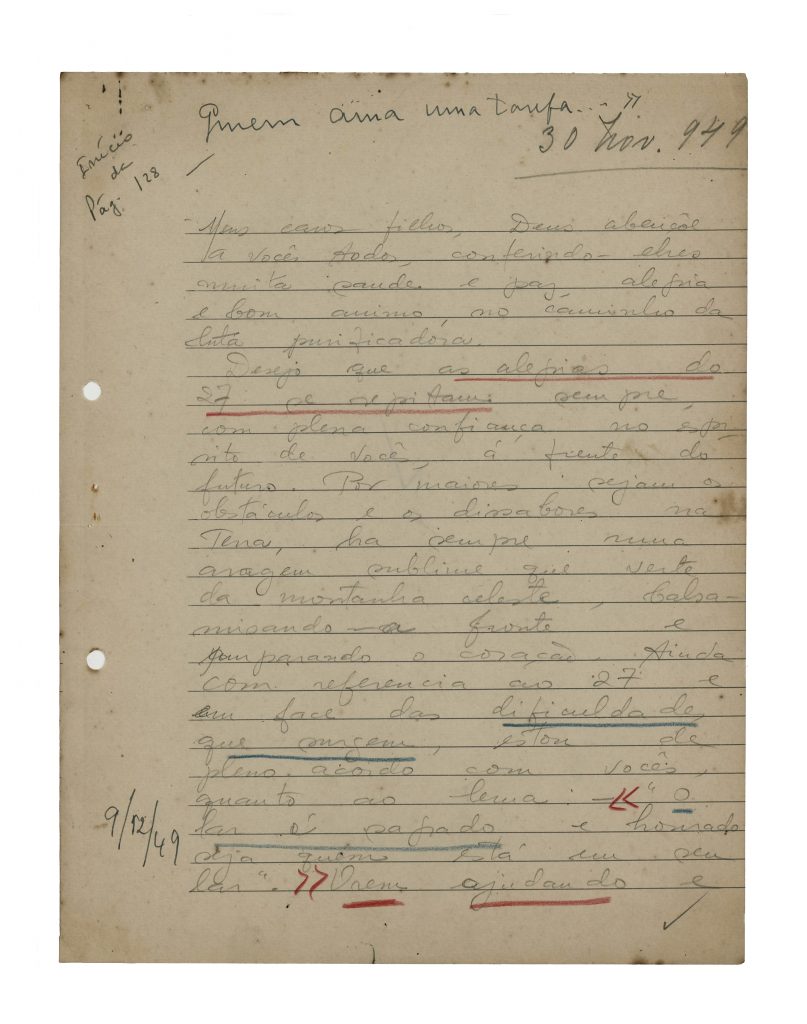 Quem ama uma tarefa... "
30 Nov. 949
Início
da
Pág. 128
Meus caros filhos, Deus abençôe
a vocês todos, conferindo-lhes
muita saude e paz, alegria
e bom animo, no caminho da
luta purificadora.
Desejo que as alegrias do
27 se repitam sempre,
com plena confiança no espí-
rito de vocês, á frente do
futuro. Por maiores sejam os
obstáculos e os dissabores na
Terra, ha sempre uma
aragem sublime que verte
da montanha celeste, balsa-
misando-a fronte e
amparando o coração. Ainda
com referencia ao 27 e
em face das dificuldades
que surgem, estou de
pleno acordo com vocês,
quanto ao lema: - « " O
lar é sagrado e honrado
seja quem está em seu
lar". » Orem ajudando e
9/12/49